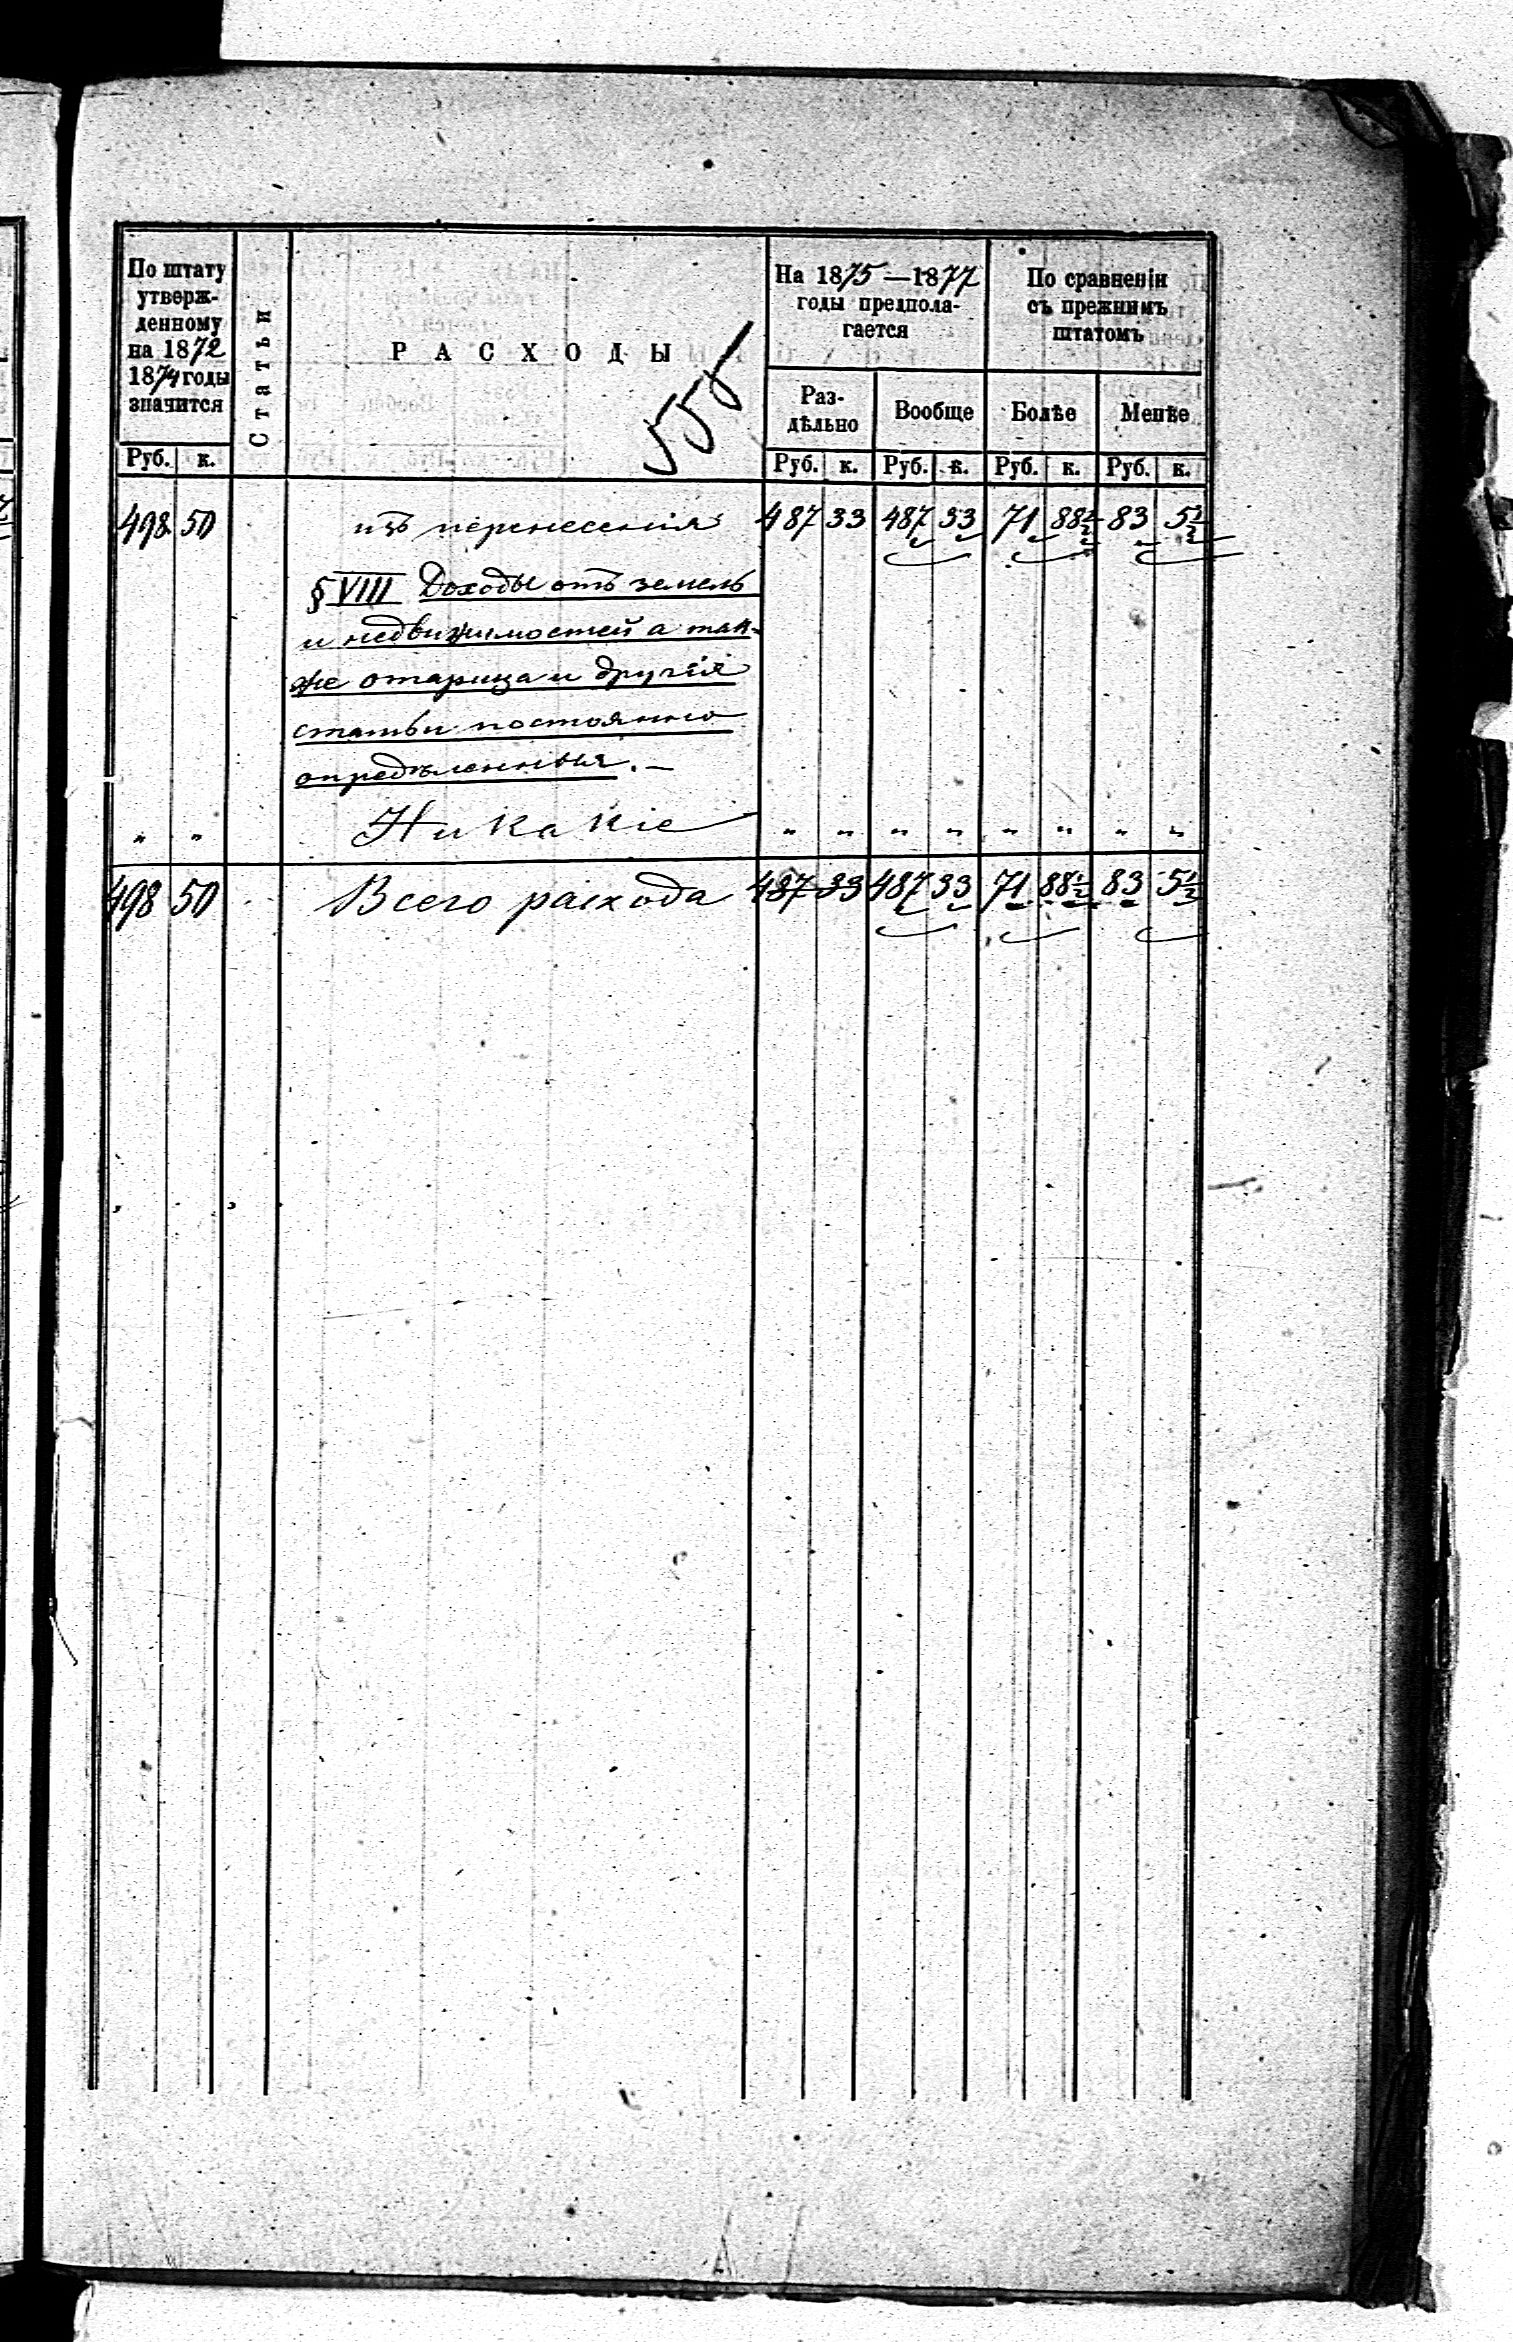 По штату
утверж-
денному
на 1872
1874 годы
значится
Руб. к.
Статьи
РАСХОДЫ
558
На 1875—1877
годы предпола-
гается
Раз-
дѣльно
Вообще
Руб. к. Руб. к.
По сравненіи
съ прежнимъ
штатомъ
Болѣе Менѣе
Руб. к. Руб. к.
498 50 изъ перенесенія 487 33 487 33 71 88½ 83 5½
§ VIII Доходы отъ земель
и недвижимостей а так-
же и другія
статьи постоянно
опредѣленныя. —
" " Никакіе " " " " " " " "
498 50 Всего расхода 487 33 487 33 71 88½ 83 5½